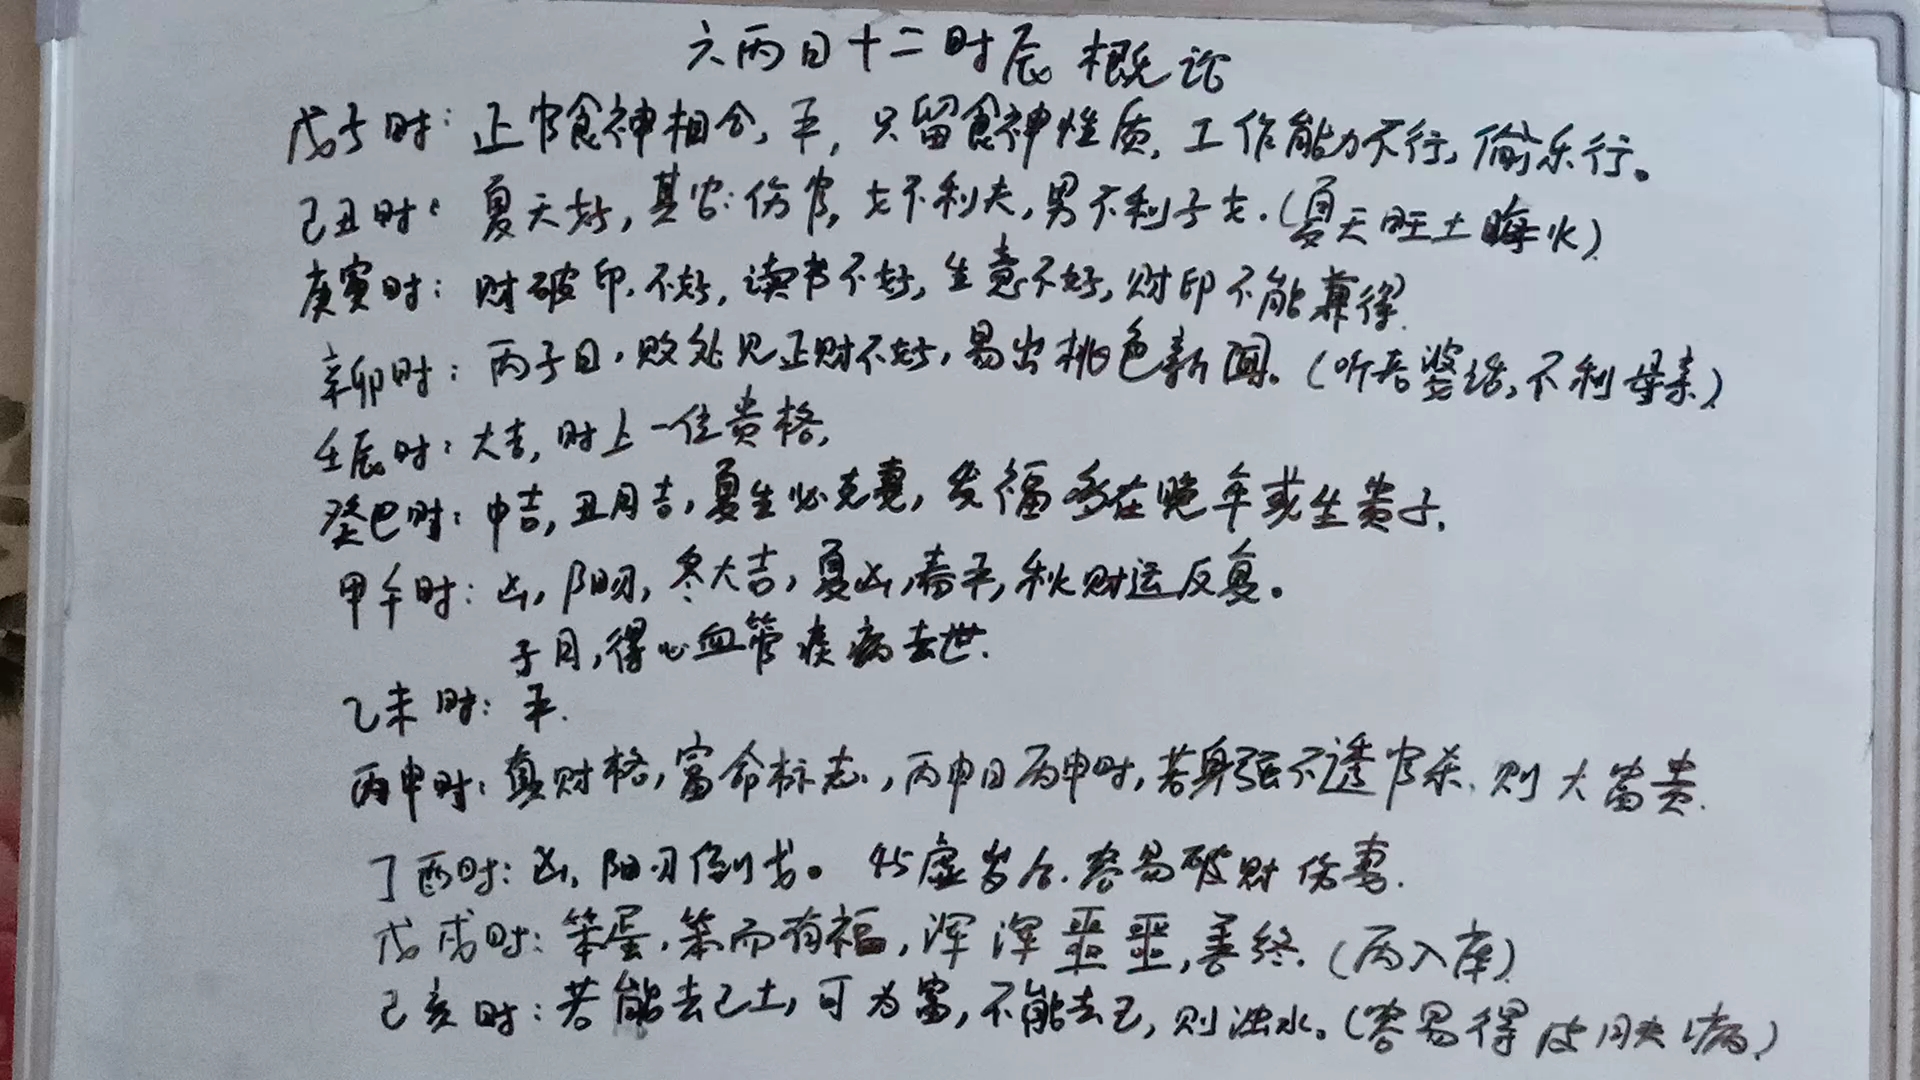 六丙日十二时辰概论
戊子时：正官食神相合，平，只留食神性质，工作能力不行，偷乐行。
己丑时：夏天好，其它：伤官，女不利夫，男不利子女.（夏天旺土晦火）
庚寅时：财破印，不好，读书不好，生意不好，财印不能兼得.
辛卯时：丙子日，败处见正财不好，易出桃色新闻。（听老婆话，不利母亲）
壬辰时：大吉，时上一位贵格，
癸巳时：中吉，丑月吉，夏生必克妻，发福多在晚年或生贵子.
甲午时：凶，阳刃，冬大吉，夏凶，春平，秋财运反复。
子月，得心血管疾病去世.
乙未时：平.
丙申时：真财格，富命标志，丙申日丙申时，若身强不透官杀，则大富贵.
丁酉时：凶，阳刃倒戈。45虚岁后.容易破财伤妻.
戊戌时：笨蛋，笨而有福，浑浑噩噩，善终.（丙入库）
己亥时：若能去己土，可为富，不能去己，则浊水。（容易得皮肤病）